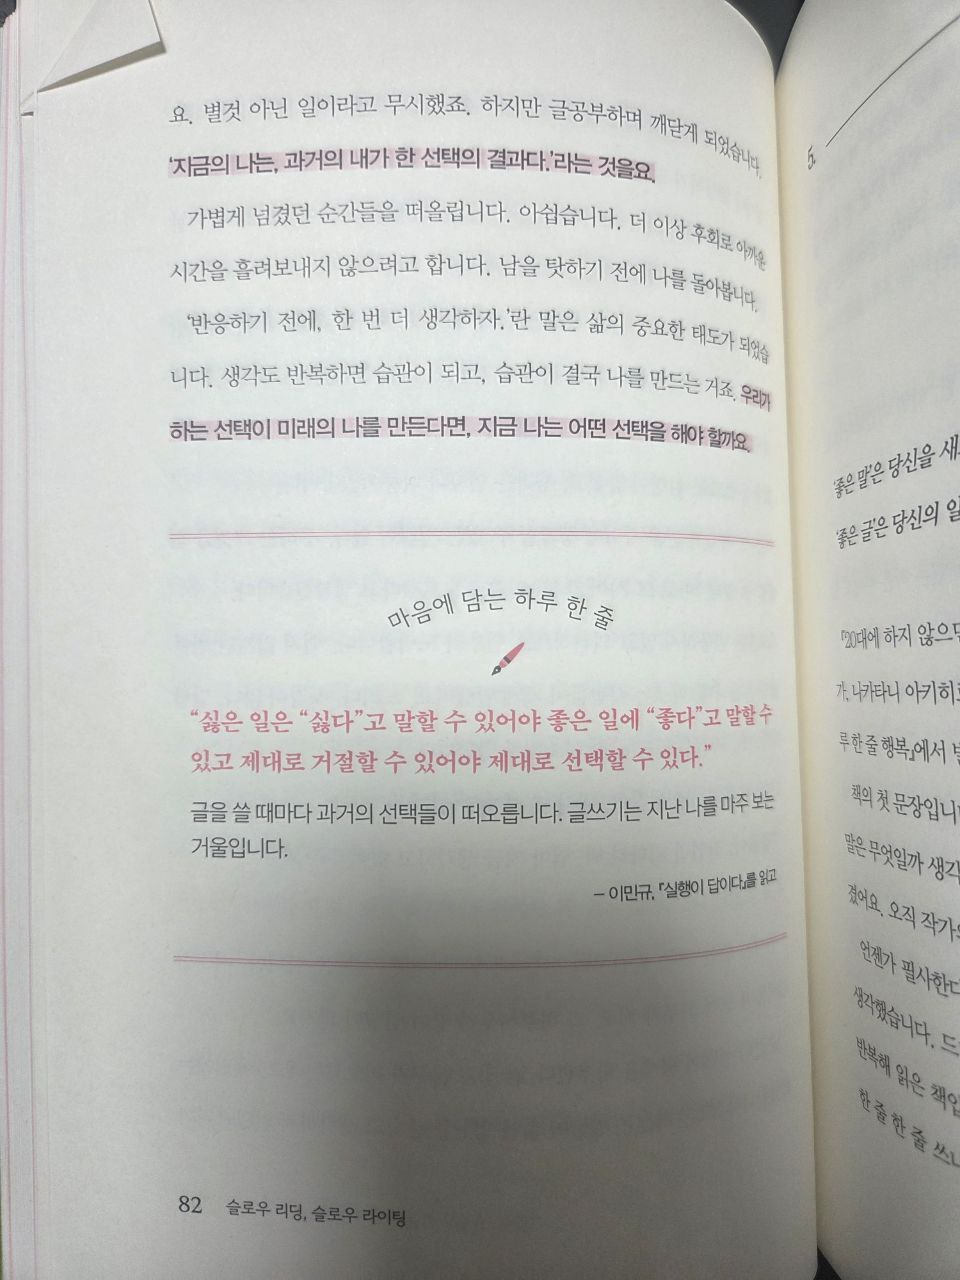 요. 별것 아닌 일이라고 무시했죠. 하지만 글공부하며 깨닫게 되었습니다.
‘지금의 나는, 과거의 내가 한 선택의 결과다.’라는 것을요.
가볍게 넘겼던 순간들을 떠올립니다. 아쉽습니다. 더 이상 후회로 아까운
시간을 흘려보내지 않으려고 합니다. 남을 탓하기 전에 나를 돌아봅니다.
‘반응하기 전에, 한 번 더 생각하자.’란 말은 삶의 중요한 태도가 되었습
니다. 생각도 반복하면 습관이 되고, 습관이 결국 나를 만드는 거죠. 우리가
하는 선택이 미래의 나를 만든다면, 지금 나는 어떤 선택을 해야 할까요.
마음에 담는 하루 한 줄
“싫은 일은 “싫다”고 말할 수 있어야 좋은 일에 “좋다”고 말할 수
있고 제대로 거절할 수 있어야 제대로 선택할 수 있다.”
글을 쓸 때마다 과거의 선택들이 떠오릅니다. 글쓰기는 지난 나를 마주 보는
거울입니다.
– 이민규, 『실행이 답이다』를 읽고
82 슬로우 리딩, 슬로우 라이팅
5.
‘좋은 말’은 당신을 새
‘좋은 글’은 당신의 일
『20대에 하지 않으면
가, 나카타니 아키히로
루 한 줄 행복』에서
책의 첫 문장입니
말은 무엇일까 생각
겼어요. 오직 작가의
언젠가 필사한다
생각했습니다. 드
반복해 읽은 책입
한 줄 한 줄 쓰